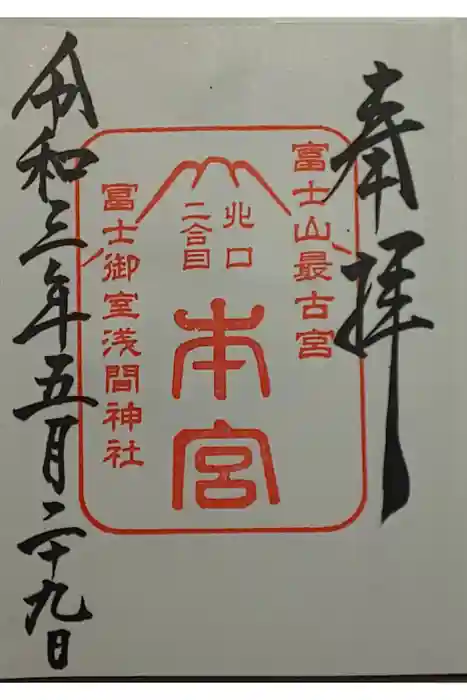 奉拝
富士山最古宮
北口
二合目
本宮
冨士御室浅間神社
令和三年五月二十九日